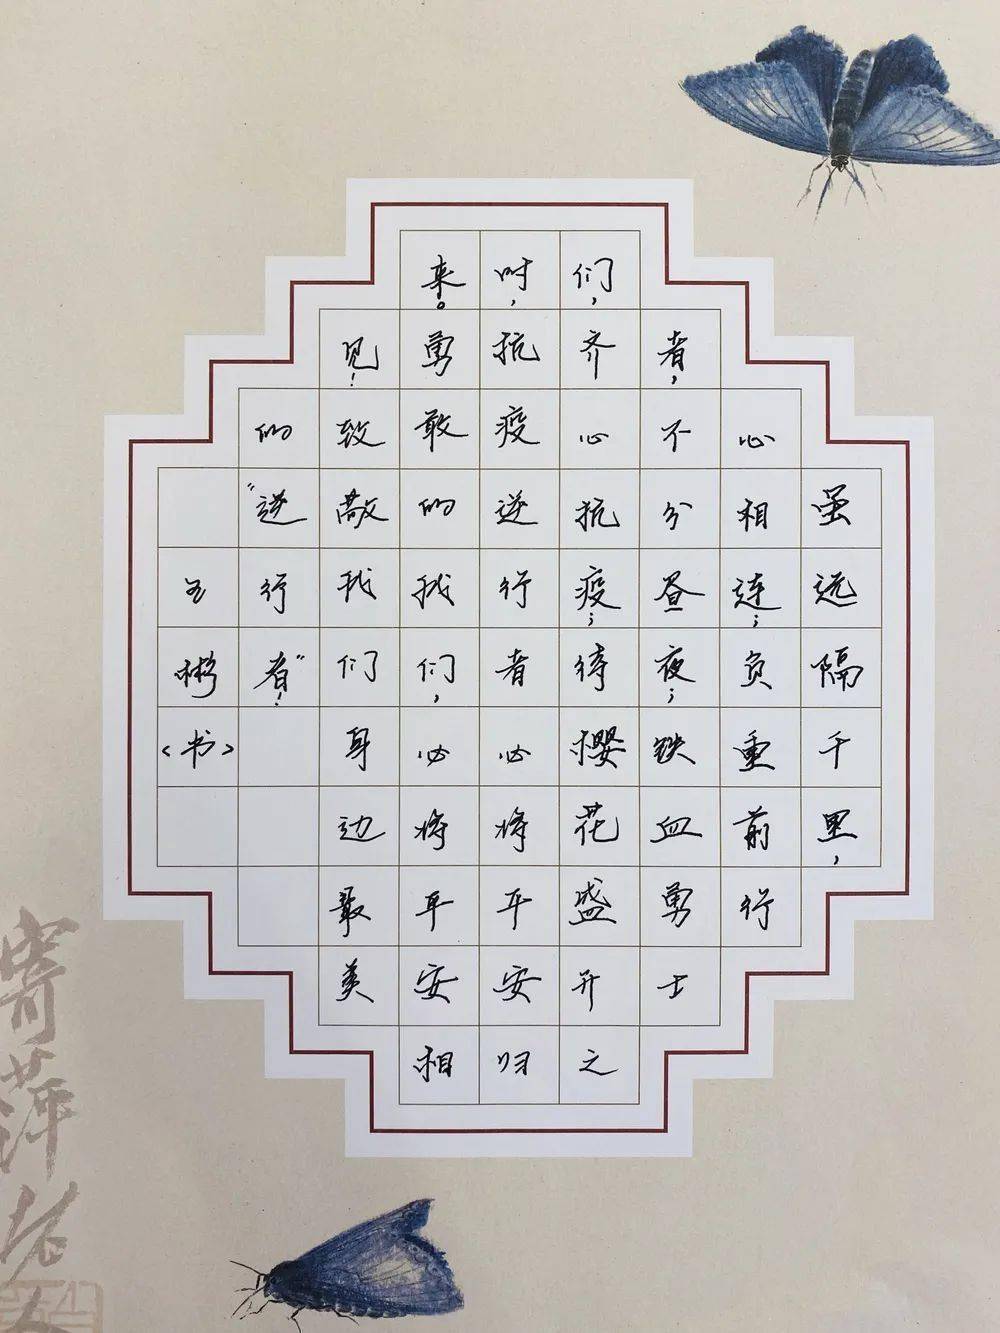 虽远隔千里，
心相连；负重前行
者，不分昼夜；铁血勇士
们，齐心抗疫；待樱花盛开之
时，抗疫逆行者必将平安归
来。勇敢的我们，必将平安相
见！致敬我们身边最美
的“逆行者”！
彬〈书〉
寄萍老人